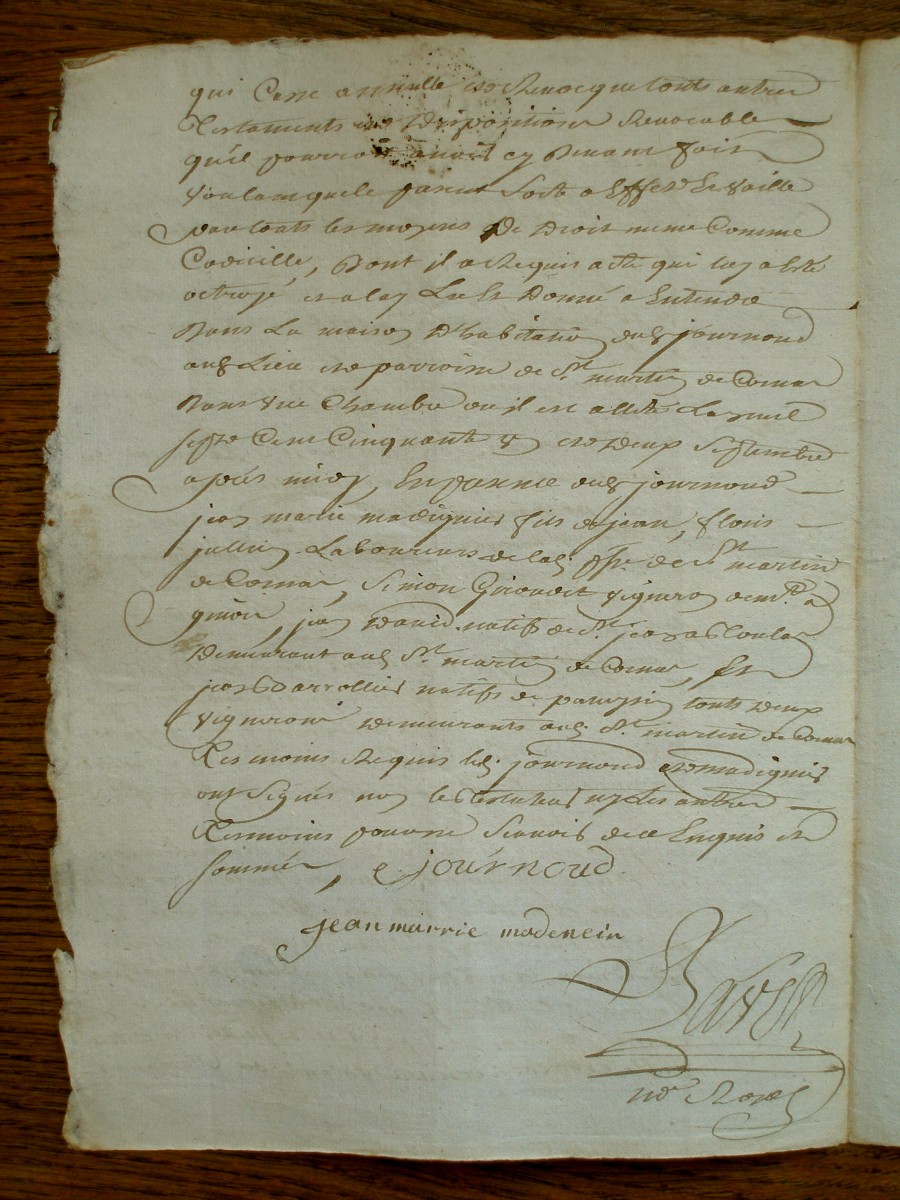 qui Casse annulle et Revocque touts autres
Testaments et Dispositions Revocable
qu'il pourroit avoir cy devant fait
voulant que le present sorte a Effet et vaille
par touts les moyens De Droit meme Comme
Codicille, Dont il a Requis acte qui luy a été
octroyé et a luy Lu et Donné a Entendre
Dans La maison D'habitation dud journoud
aud Lieu et parroisse de St martin de Cornas
Dans une Chambre ou il est allité La mil
sept Cent Cinquante et deux septembre
après midy, En presence dud journoud
jean marie madignier fils de jean, floris
jullien Laboureurs de lad psse de St martin
de Cornas, Simon Giraudet vigneron de
jean David natif de St jean
Demeurant aud St martin de Cornas, Et
natifs de tous deux
vignerons Demeurants aud St martin de Cornas
Tesmoins Requis led journoud et madignier
ont signés non le testateur ny Les autres
Tesmoins pour ne sçavoir de ce Enquis et
sommés, journoud
jean marrie madenein
nore Royal